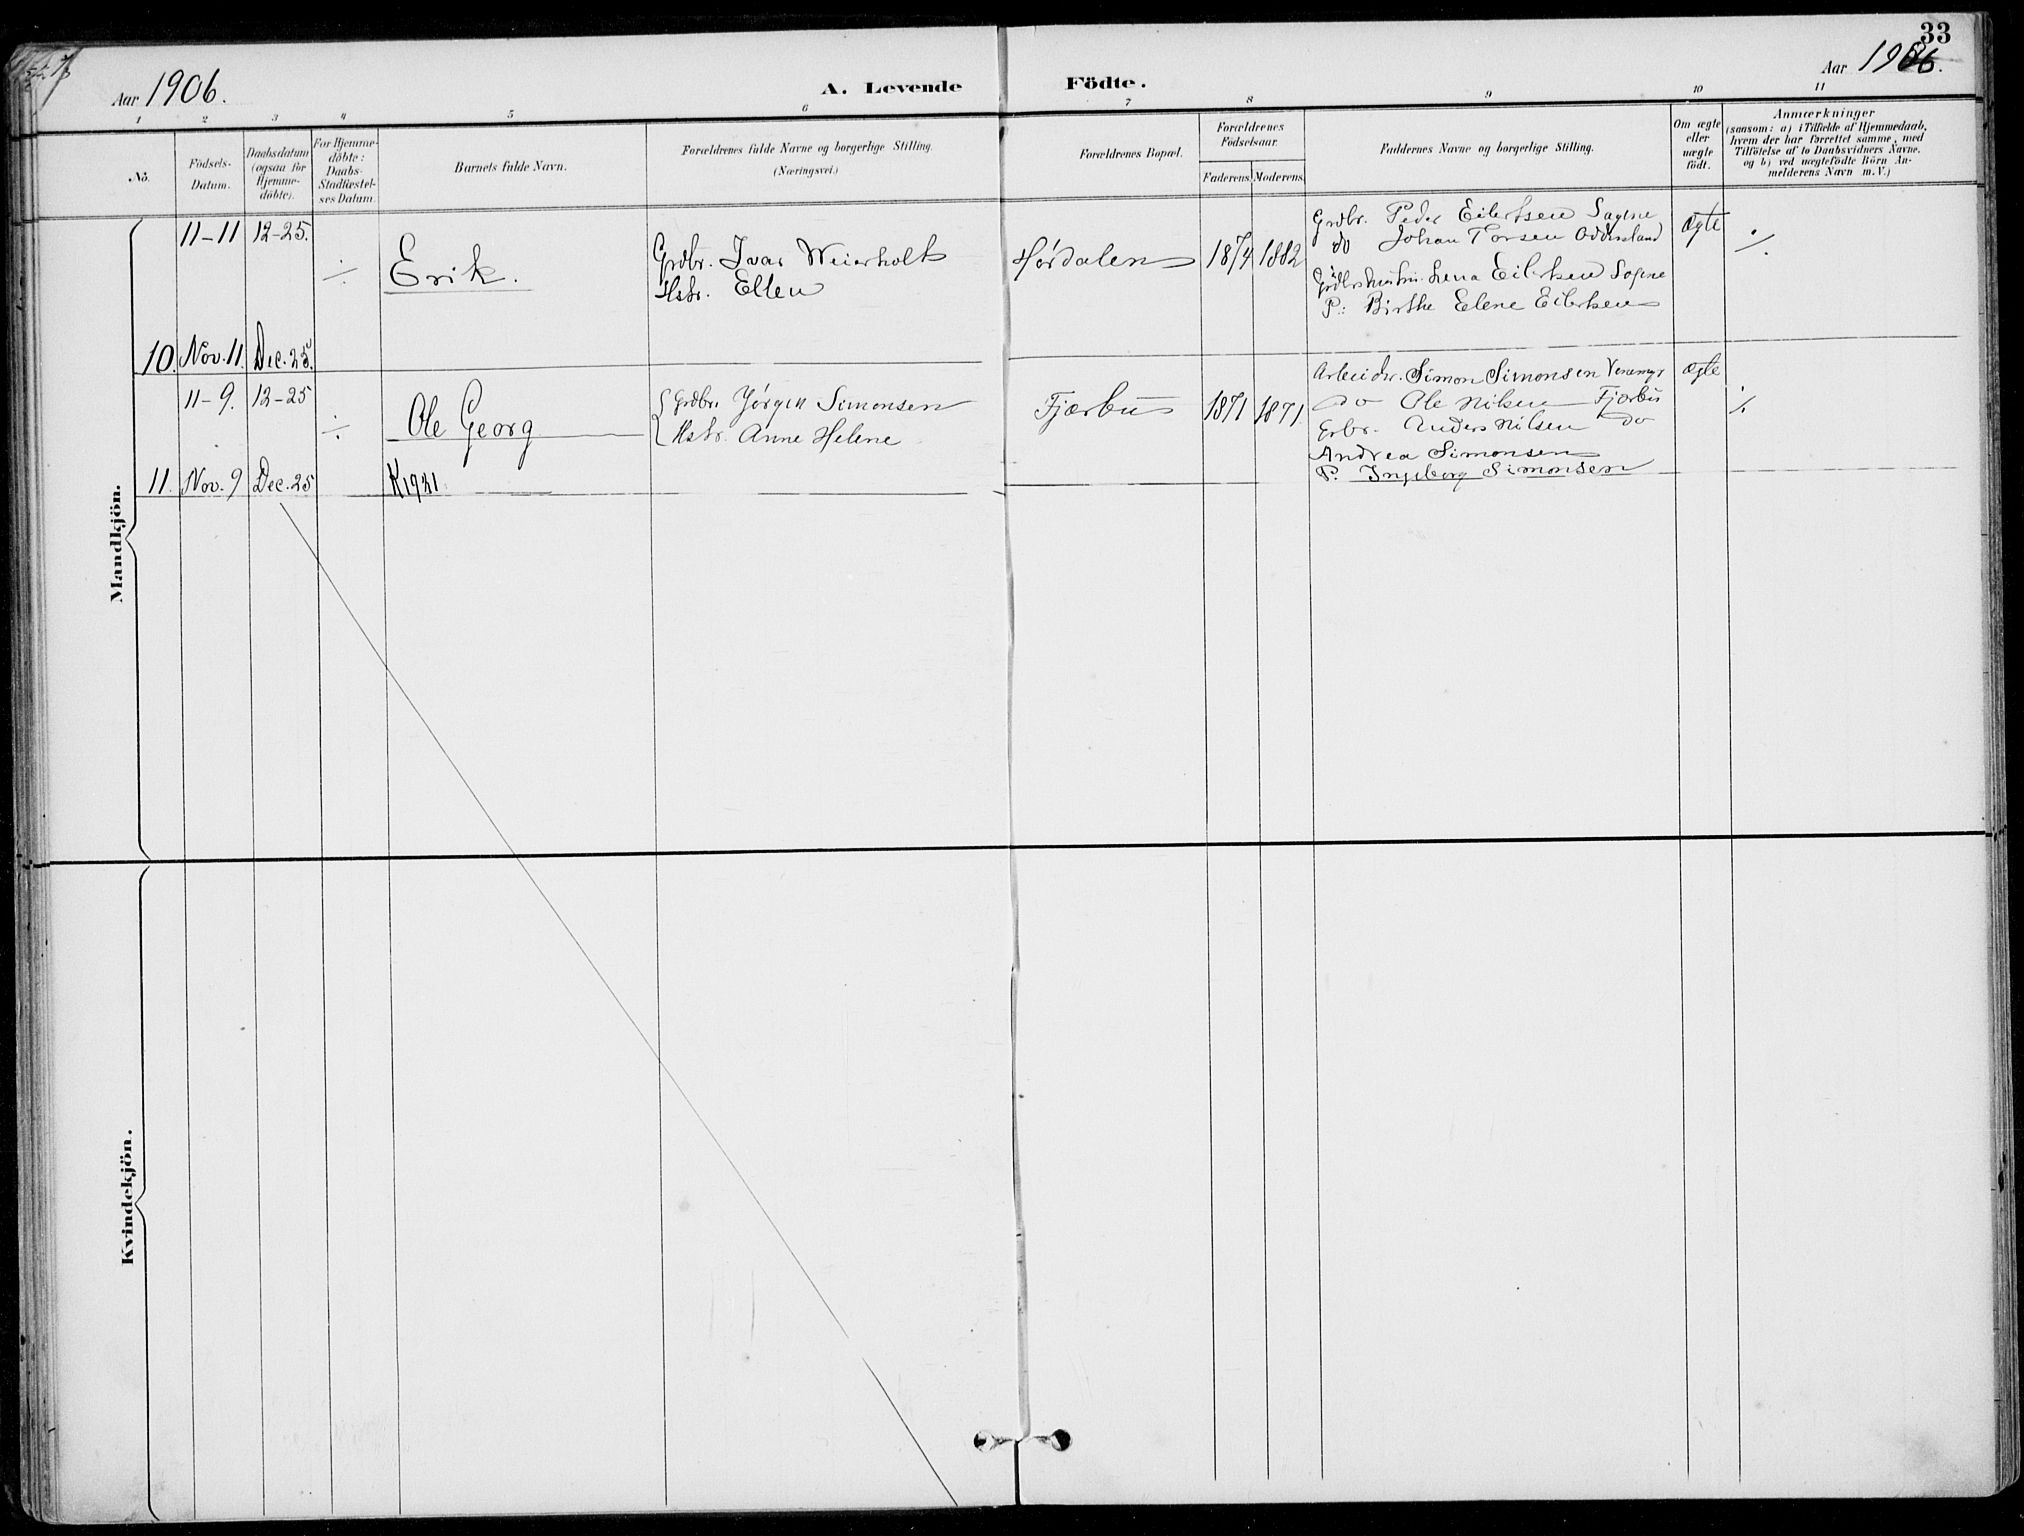 33
Aar 1906.
A. Levende Födte.
Aar 1906.
1 2 3 4 5 6 7 8 9 10 11
No.
Födsels-Datum.
Daabsdatum (ogsaa for Hjemme-döbte).
For Hjemme-döbte: Daabs-Stadfæstel-ses Datum.
Barnets fulde Navn.
Forældrenes fulde Navne og borgerlige Stilling.
(Næringsvei.)
Forældrenes Bopæl.
Forældrenes Födselsaar.
Faderens. Moderens.
Faddernes Navne og borgerlige Stilling.
Om ægte eller uægte födt.
Anmærkninger
(saasom: a) i Tilfælde af Hjemmedaab,
hvem der har forrettet samme, med
Tilföielse af to Daabsvidners Navne.
og b) ved uægtefödte Börn An-
melderens Navn m. V.)
Mandkjön.
11-11 12-25.
10. Nov. 11. Dec. 25.
÷
Erik.
Grdbr. Ivar Weierholt
Hstr. Ellen
Hørdalen
1874 1882
Grdbr. Peder Eilertsen Sagene
do Johan Torsen Oddersland
Lena Eilertsen Sagene
P: Birthe Elene Eilertsen
Ægte
./.
11-9. 12-25
11. Nov. 9 Dec. 25
÷
Ole Georg
K1921
Grdbr. Jørgen Simonsen
Hstr. Anne Helene
Fjærbu
1871 1871.
Arbeidr. Simon Simonsen
do Ole Nilsen Fjærbu
Anders Nilsen do
Andrea Simonsen
P. Ingeborg Simonsen
Ægte
./.
Kvindekjön.